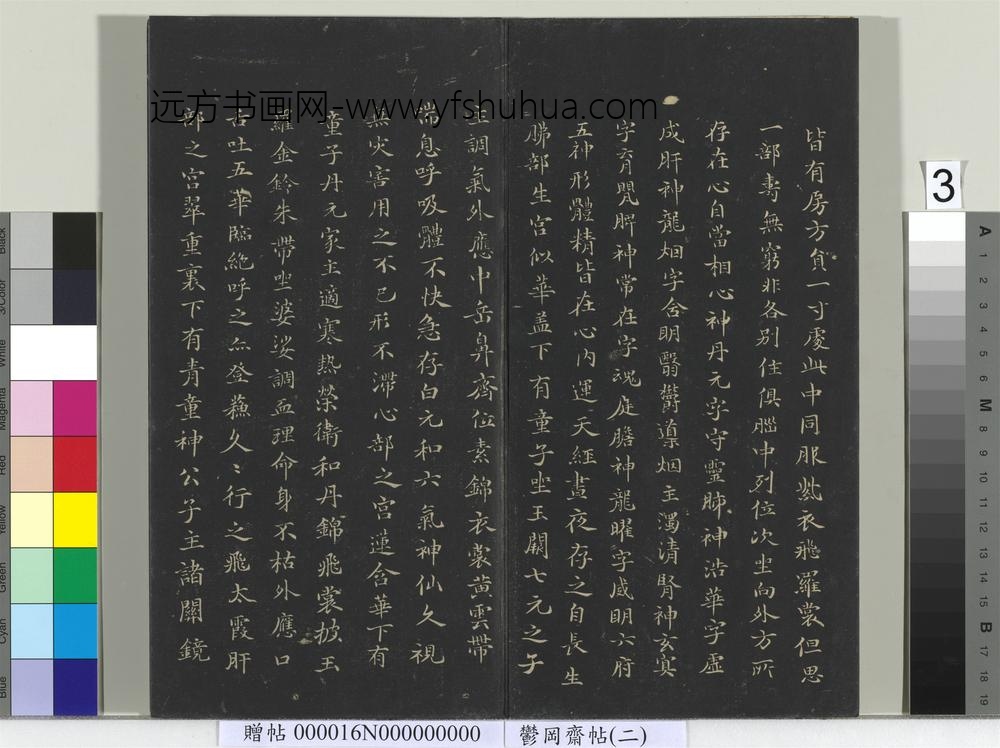 远方书画网-www.yfshuhua.com
皆有房方負一寸處此中同服紫衣飛羅裳但思
一部壽無窮非各別住俱腦中列位次坐向外方所
存在心自當相心神丹元字守靈肺神浩華字虛
成肝神龍烟字含明翳欝導烟主濁清腎神玄冥
字育嬰脾神常在字魂庭膽神龍曜字威明六府
五神形體精皆在心內運天經晝夜存之自長生
肺部生宮似華蓋下有童子坐玉闕七元之子
主調氣外應中岳鼻齊位素錦衣裳黃雲帶
喘息呼吸體不快急存白元和六氣神仙久視
無灾害用之不已形不滯心部之宮蓮含華下有
童子丹元家主適寒熱榮衛和丹錦飛裳披玉
羅金鈴朱帶坐婆娑調血理命身不枯外應口
舌吐五華臨絕呼之亦登蘇久〻行之飛太霞肝
部之宮翠重裏下有青童神公子主諸關鏡
3
贈帖 000016N000000000
鬱岡齋帖(二)
Black
3/Color
White
Magenta
Red
Yellow
Green
Cyan
Blue
A
1
2
3
4
5
M
8
9
10
11
12
13
14
15
B
17
18
19